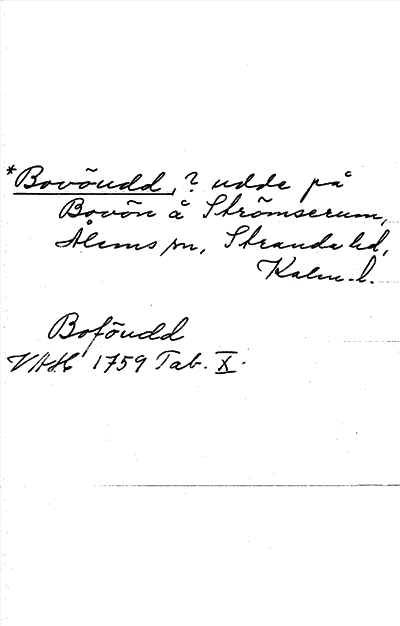 *Bovöudd, ? udde på
Bovön å Strömserum,
Ålems sn, Stranda hd,
Kalm. l.
Boföudd
VAH 1759 Tab. X.